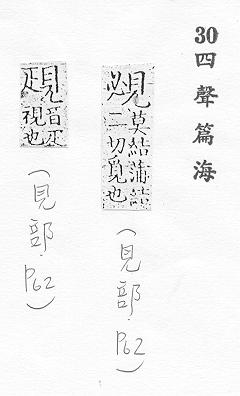 30 四聲篇海
覕 莫結蒲結二切覓也
(見部.P62)
音 視也
(見部.P62)